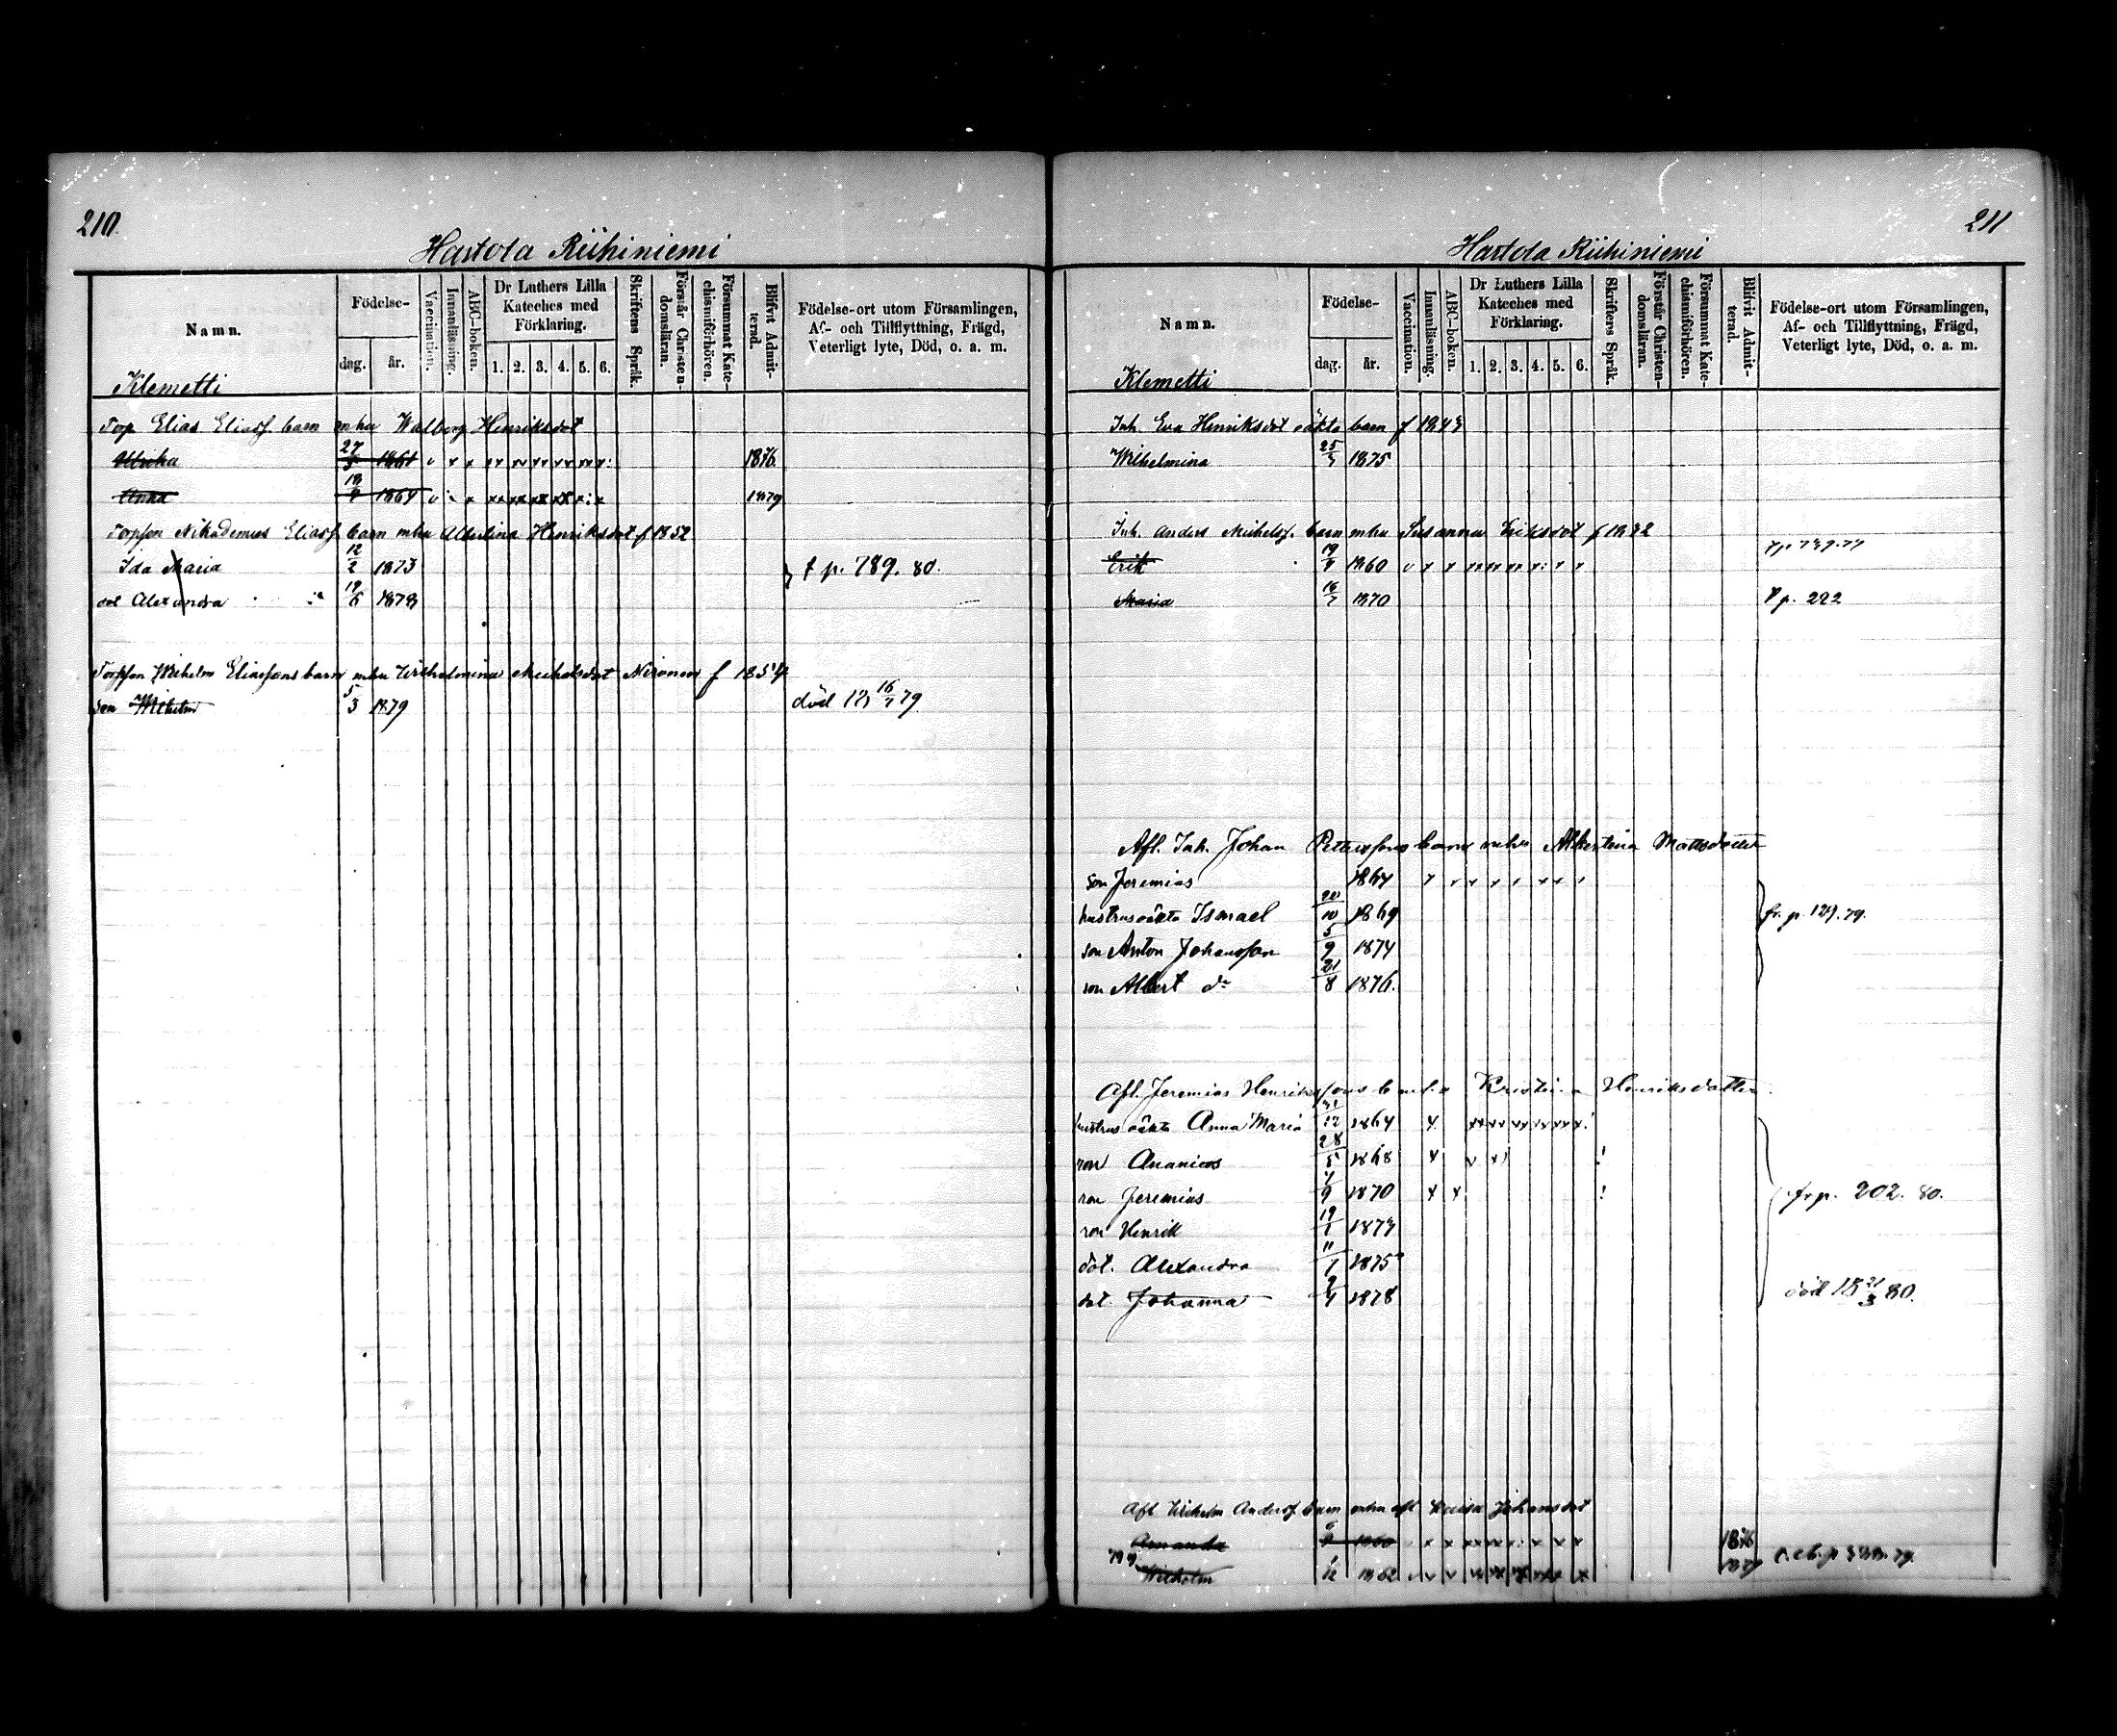 210.
Hartola Riihiniemi
Namn.
Födelse-
dag.
år.
Vaccination.
Innanläsning.
ABC-boken.
Dr Luthers Lilla
Kateches med
Förklaring.
1. 2. 3. 4. 5. 6.
Skriftens Språk.
Förstår Christen-
domsläran.
Försummat Kate-
chismiförhören.
Blifvit Admit-
terad.
Födelse-ort utom Församlingen,
Af- och Tillflyttning, Frägd,
Veterligt lyte, Död, o. a. m.
Klemetti
Torp. Elias Eliasf. barn mhu Walborg Henriksdot
Ulrika 27 1861 1876
Anna 18 1864 1879
Torpson Nikodemus Eliasf. barn mhu Albertina Henriksdot f 1852
Ida Maria 12/2 1873 t p. 789. 80.
dot Alexandra 19/6 1878
Torpson Wilhelm Eliassons barn mhu Wilhelmina Michelsdot Nironen f 1854
son Wilhelm 5/3 1879 död 12 16/7 79
211
Hartola Riihiniemi
Namn.
Födelse-
dag.
år.
Vaccination.
Innanläsning.
ABC-boken.
Dr Luthers Lilla
Kateches med
Förklaring.
1. 2. 3. 4. 5. 6.
Skriftens Språk.
Förstår Christen-
domsläran.
Försummat Kate-
chismiförhören.
Blifvit Admit-
terad.
Födelse-ort utom Församlingen,
Af- och Tillflyttning, Frägd,
Veterligt lyte, Död, o. a. m.
Klemetti
Inh. Eva Henriksdot oäkta barn f 1843
Wilhelmina 25 1875
Inh. Anders Michelsf. barn mhu Susanna Eriksdot f
Erik 19 1860
Maria 16/7 1870 p. 222
Afl. Inh. Johan Peterssons barn mhu Albertina Mattsdotter
son Jeremias 1864
hustrus oäkta Ismael 20/10 1869 fr. p. 129. 79.
son Anton Johansson 5/9 1874
son Albert do 21/8 1876.
Afl. Jeremias Henrikssons b mhu Kristina Henriksdotter
hustrus oäkta Anna Maria 12 1864
son Ananias 28/5 1868
son Jeremias 4/9 1870 fr p. 202. 80.
son Henrik 19/1 1873
dot. Alexandra 11/1 1875
dot. Johanna 9 1878 död 18 21/3 80.
Afl Wilhelm Andersf. barn mhu afl Johansdot
Amanda 1860 1876
Wilhelm 1/12 1862 1879